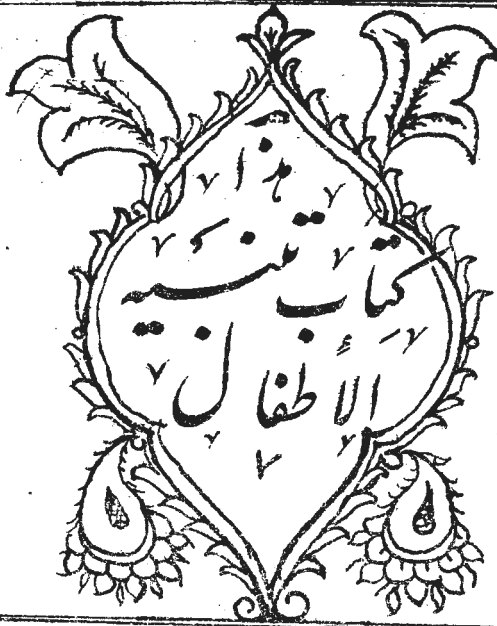 هذا
كتاب تنبيه
الأطفال